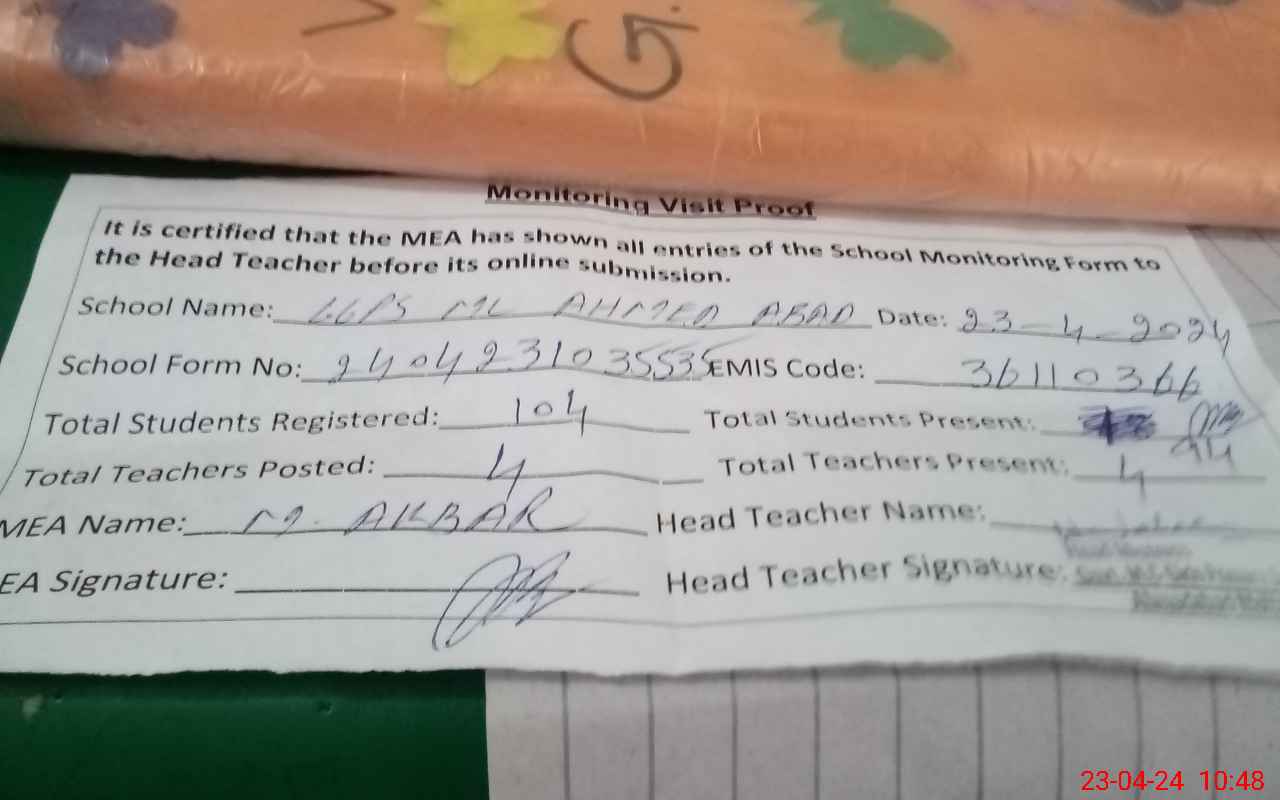 G.
Monitoring Visit Proof
It is certified that the MEA has shown all entries of the School Monitoring Form to
the Head Teacher before its online submission.
School Name: ML AHMED ABAD Date: 23-4-2024
School Form No: 2404231035535 EMIS Code: 36110366
Total Students Registered: 104 Total Students Present: 94
Total Teachers Posted: 4 Total Teachers Present: 4
MEA Name: M. AKBAR Head Teacher Name:
EA Signature: Head Teacher Signature:
23-04-24 10:48